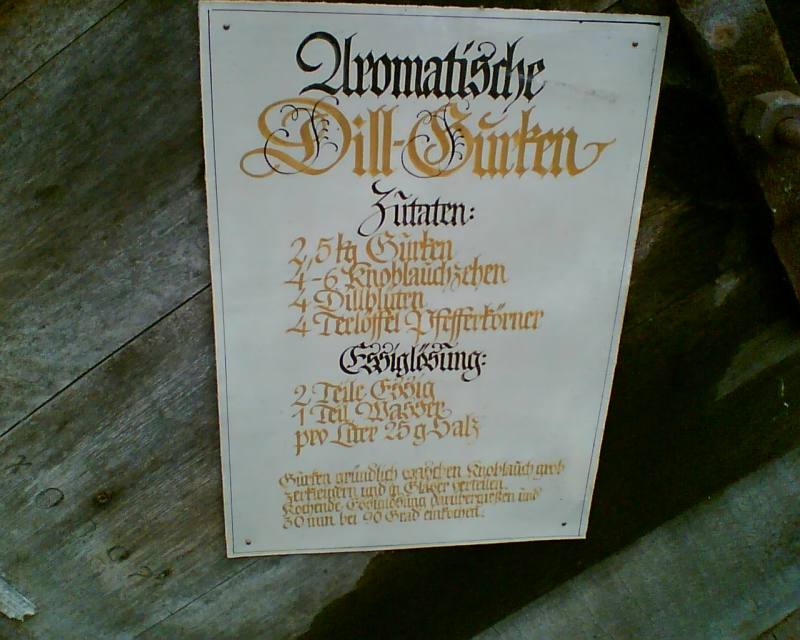 Aromatische
Dill-Gurken
Zutaten:
2,5 kg Gurken
4-6 Knoblauchzehen
4 Dillblüten
4 Teelöffel Pfefferkörner
Essiglösung:
2 Teile Essig
1 Teil Wasser
pro Liter 25 g Salz
Gurken gründlich waschen Knoblauch grob
zerkleinern und in Gläser verteilen
Kochende Essiglösung darübergießen und
30 min bei 90 Grad